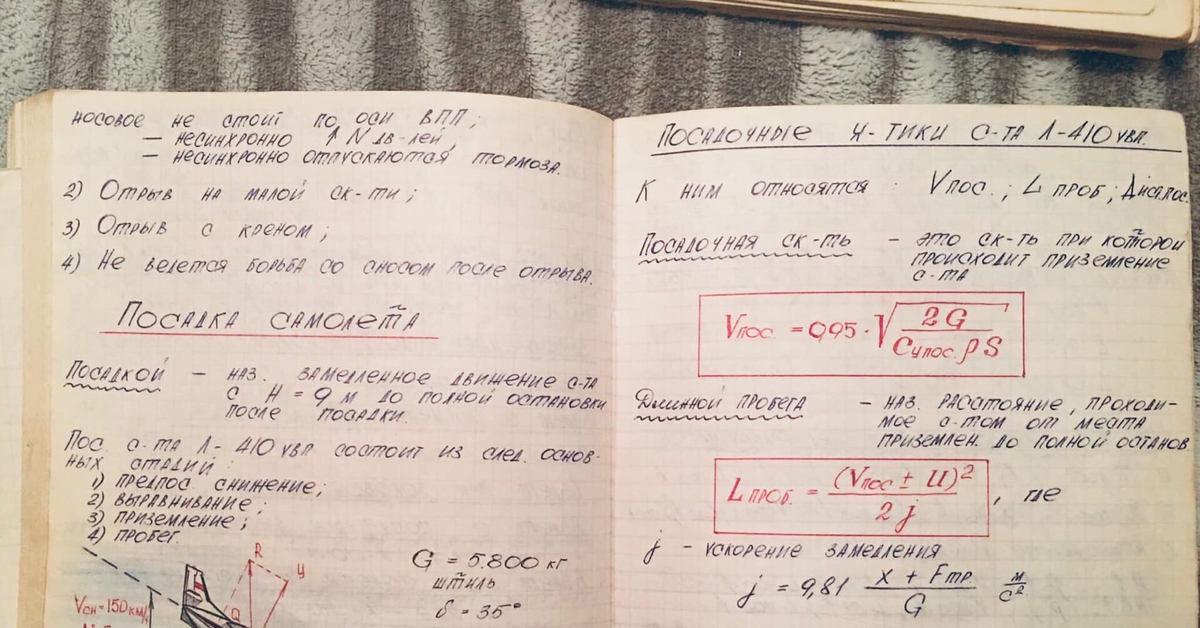 носовое не стоит по оси ВПП;
— несинхронно ↑ N дв-лей,
— несинхронно отпускаются тормоза.
2) Отрыв на малой ск-ти;
3) Отрыв с креном;
4) Не ведется борьба со сносом после отрыва.
Посадка самолета
Посадкой — наз. замедленное движение с-та
с H = 9 м до полной остановки
после посадки.
Пос. с-та Л-410 увп состоит из след. основ-
ных стадий:
1) предпос снижение;
2) выравнивание;
3) приземление;
4) пробег.
G = 5.800 кг
штиль
δ = 35°
R
y
Q
Vсн = 150 км/
Посадочные х-тики с-та Л-410 увп.
К ним относятся: Vпос.; L проб; Дисп.пос.
Посадочная ск-ть — это ск-ть при которой
происходит приземление
с-та
Vпос. = 0,95 · √(2G / Cyпос. ρ S)
Длинной пробега — наз. расстояние, проходи-
мое с-том от места
приземлен. до полной останов.
L проб. = (Vпос ± U)² / 2j, где
j - ускорение замедления
j = 9,81 (X + Fтр.) / G м/с²